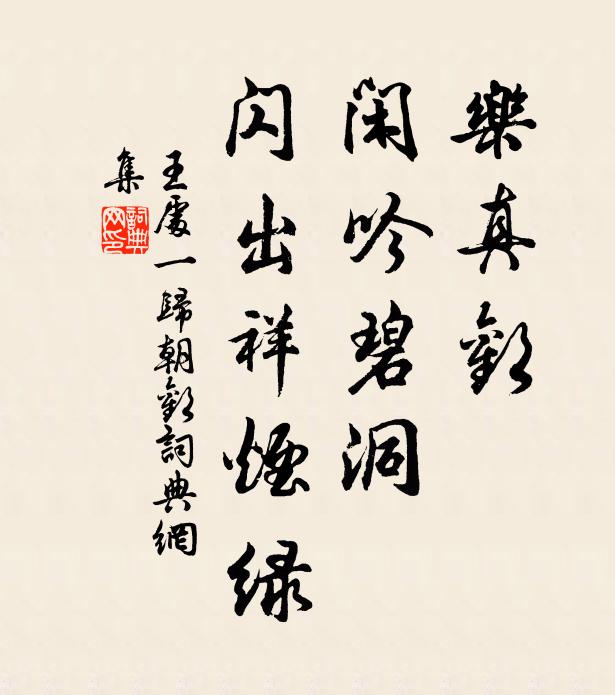 樂真歡
閑吟碧洞
閃出祥煙緑
王處一歸朝歡詞典網
集
詞典網印